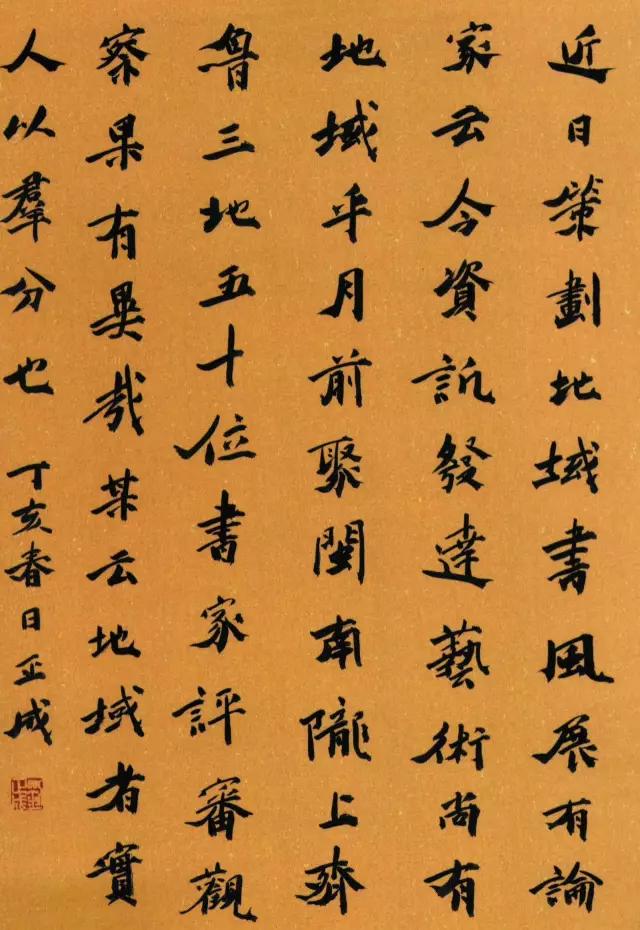 近日策劃地域書風展有論
家云今資訊發達藝術尚有
地域乎月前聚閩南隴上齊
魯三地五十位書家評審觀
察果有異哉某云地域者實
人以羣分也 丁亥春日正成